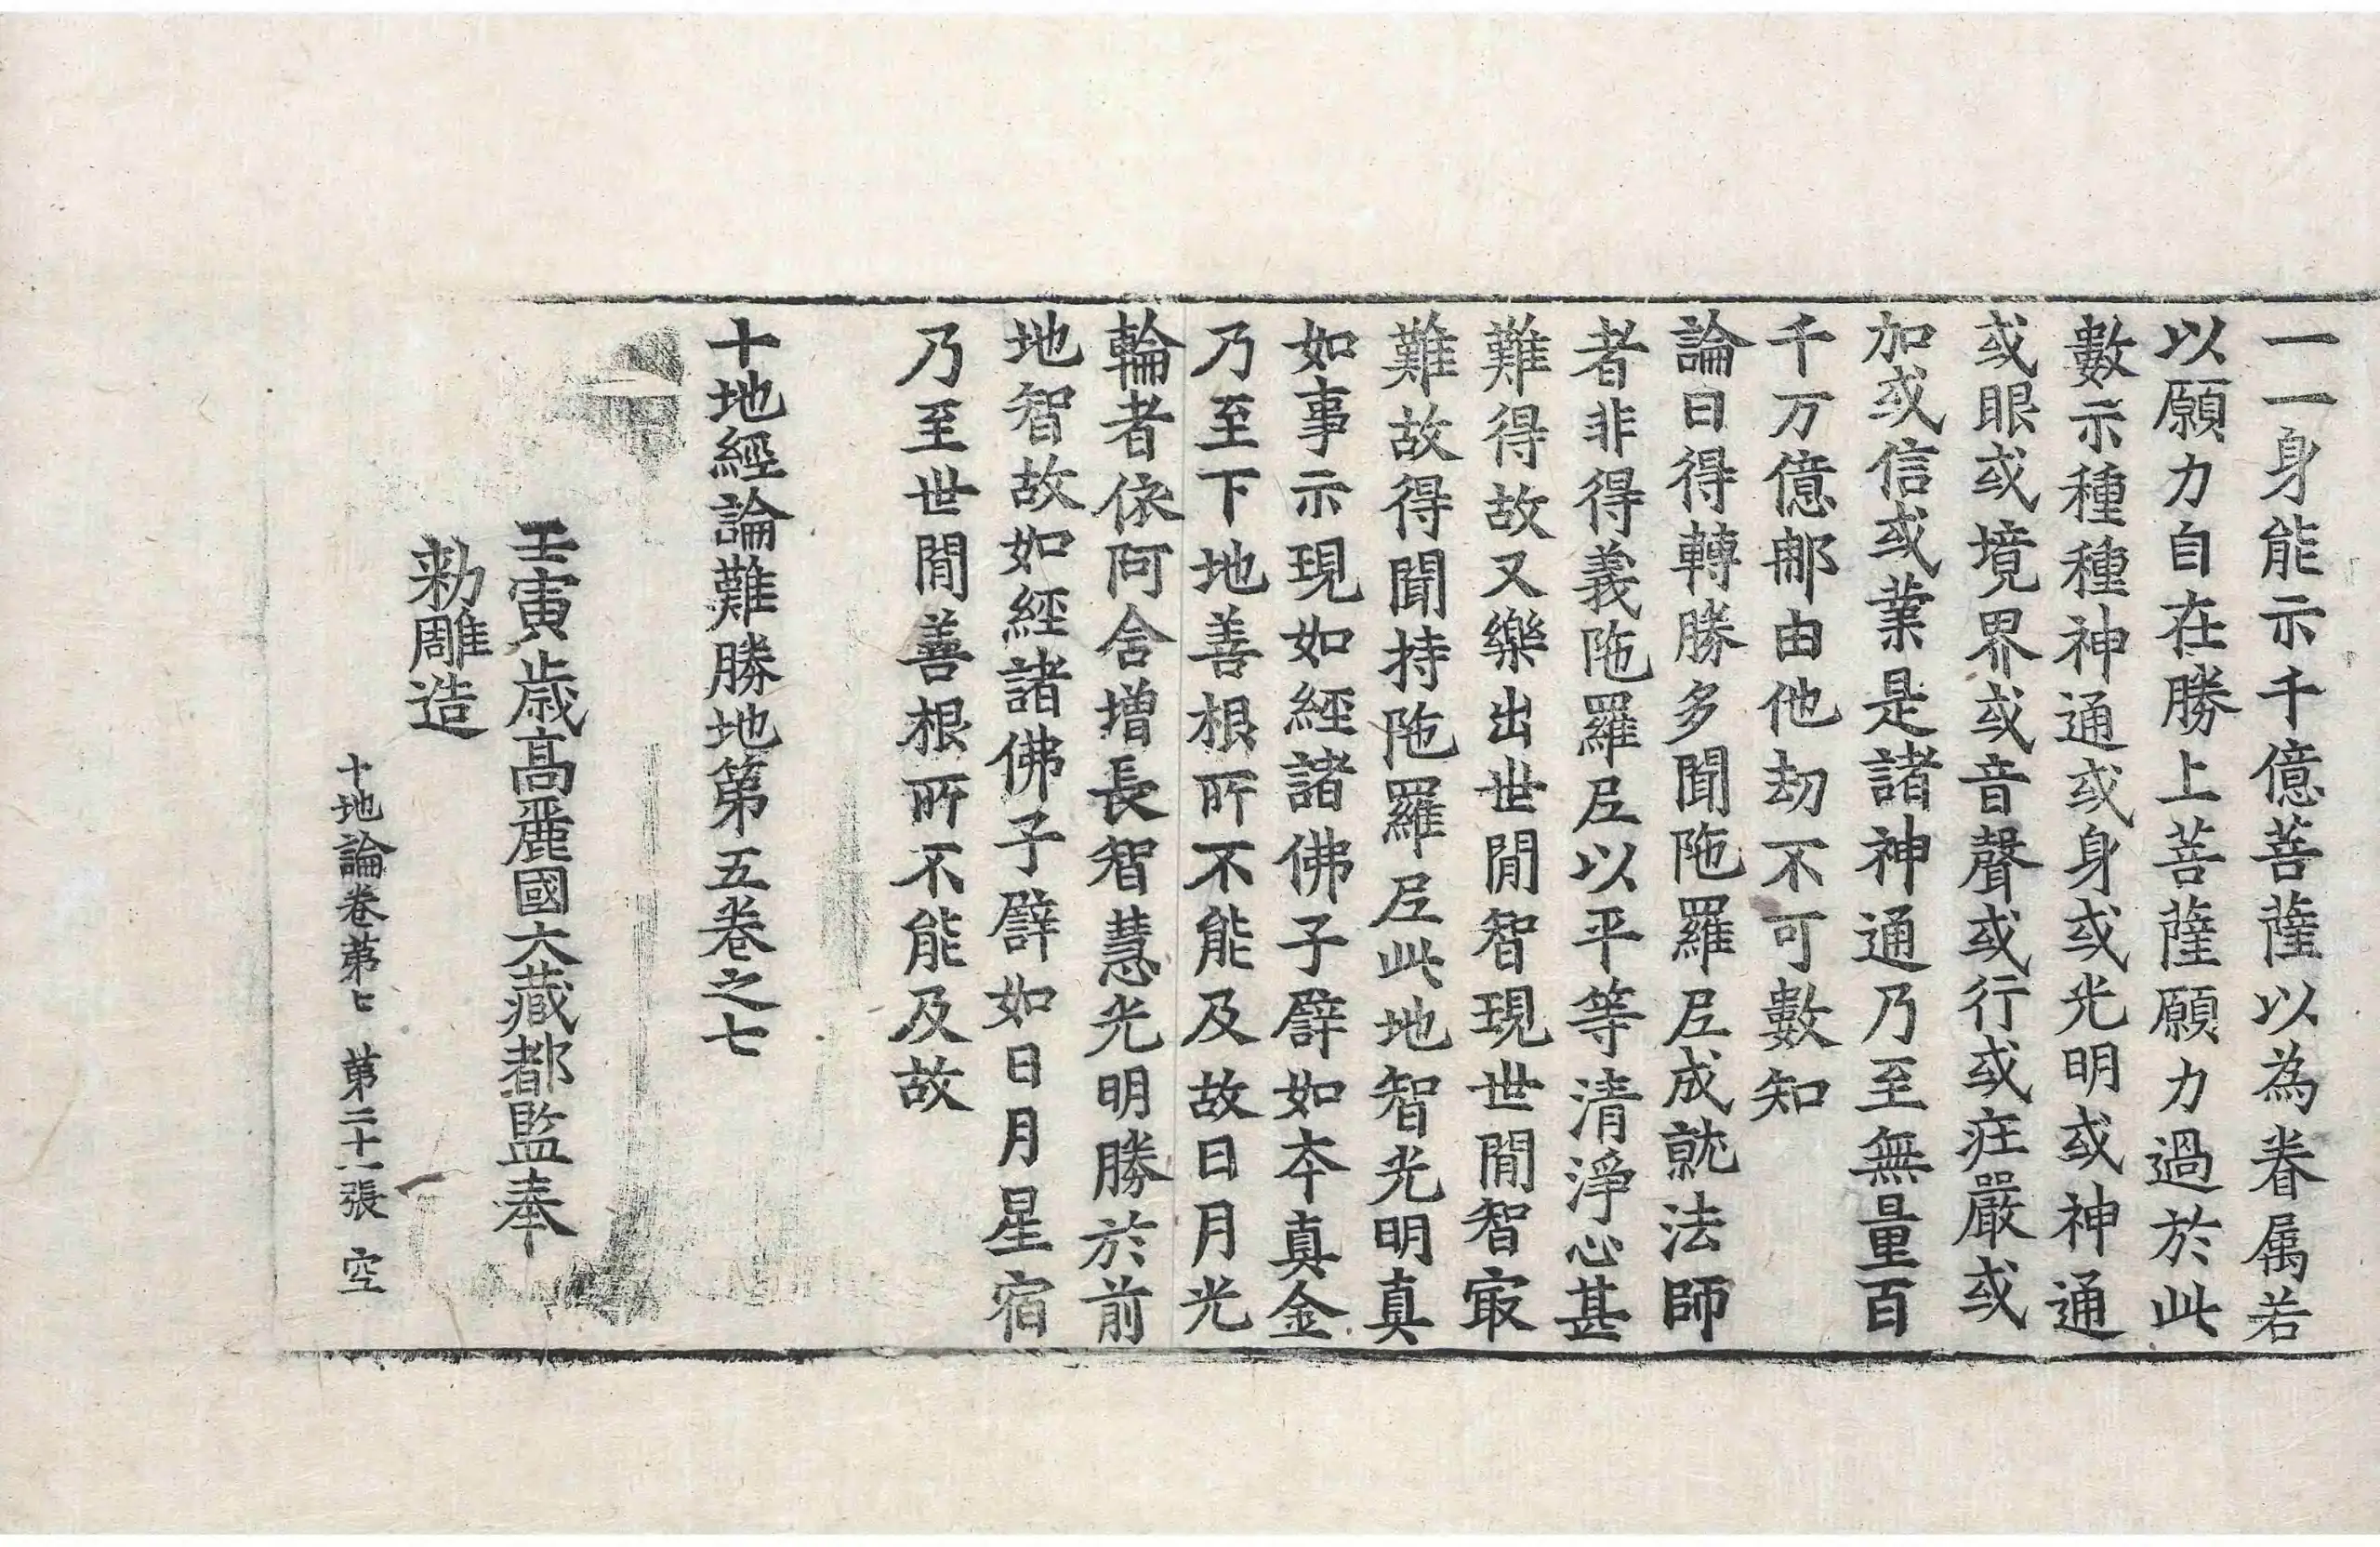 一一身能示千億菩薩以為眷属若
以願力自在勝上菩薩願力過於此
數示種種神通或身或光明或神通
或眼或境界或音聲或行或庄嚴或
加或信或業是諸神通乃至無量百
千万億那由他劫不可數知
論曰得轉勝多聞陁羅尼成就法師
者非得義陁羅尼以平等清淨心甚
難得故又樂出世閒智現世閒智㝡
難故得聞持陁羅尼此地智光明真
如事示現如經諸佛子譬如夲真金
乃至下地善根所不能及故日月光
輪者依阿含增長智慧光明勝於前
地智故如經諸佛子譬如日月星宿
乃至世閒善根所不能及故
十地經論難勝地第五卷之七
壬寅歲高麗國大藏都監奉
勑雕造
十地論卷第七 第二十一張 空